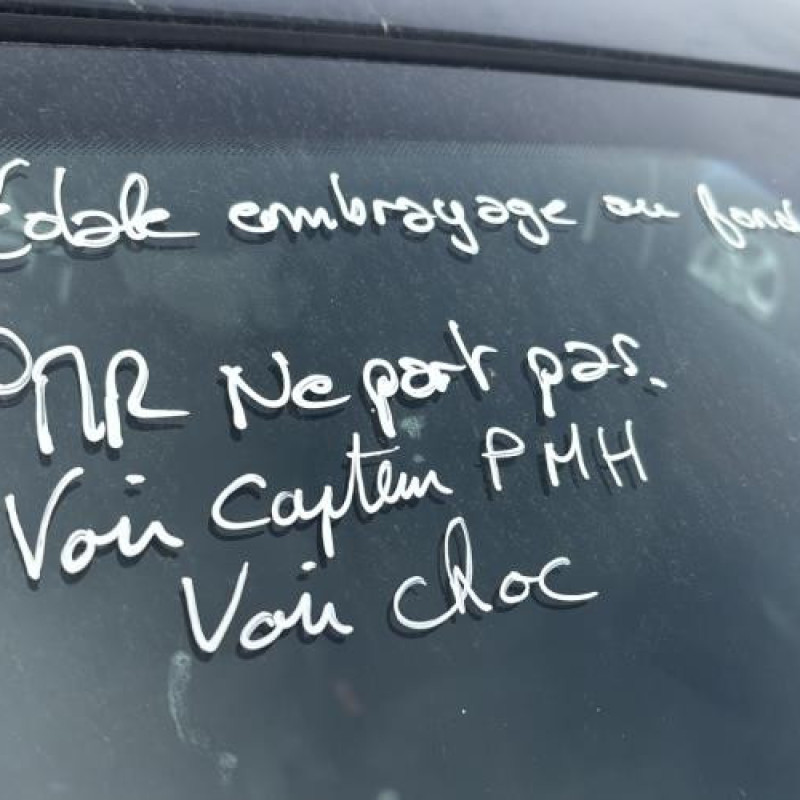 Pédale embrayage au fond
PMR Ne part pas.
Voir Capteur PMH
Voir choc